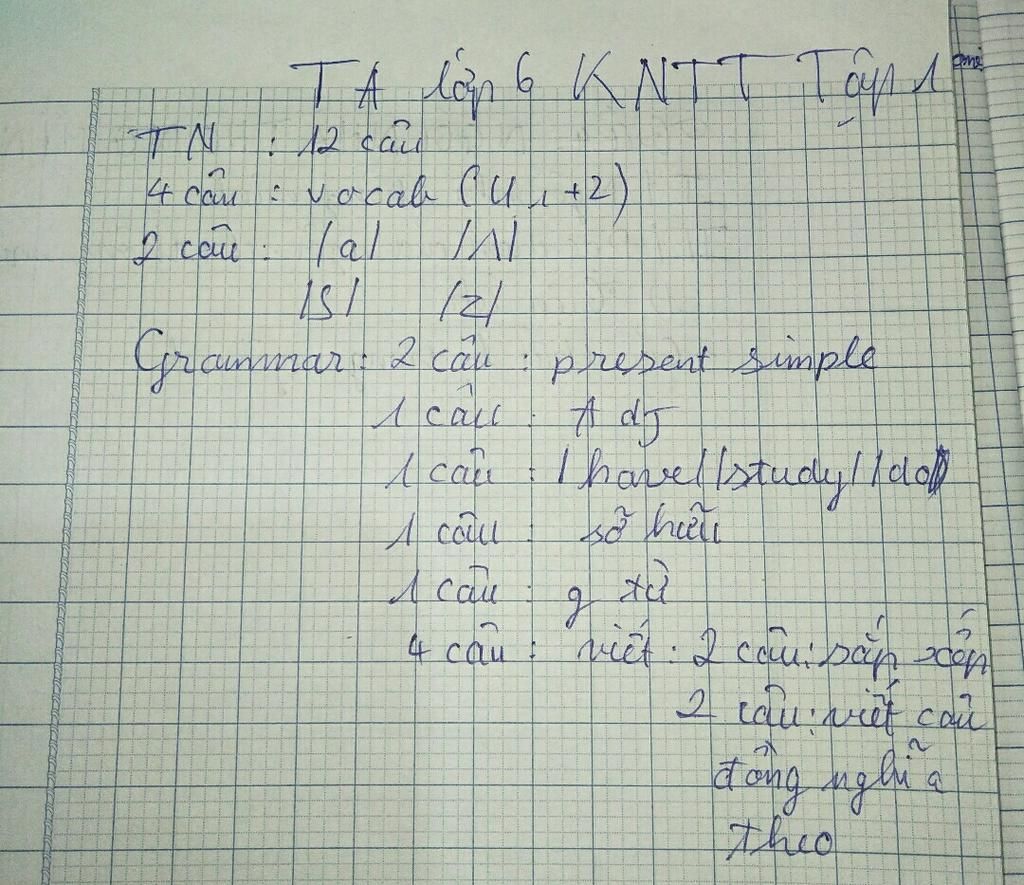 TA lớp 6 KNTT Tập 1
TN : 12 câu
4 câu : vocab (U1+2)
2 câu : /a/ /ʌ/
/s/ /z/
Grammar : 2 câu : present simple
1 câu : Adj
1 câu : /have/ /study/ /do/
1 câu : sở hữu
1 câu : g từ
4 câu : viết : 2 câu : sắp xếp
2 câu : viết câu
đồng nghĩa
theo